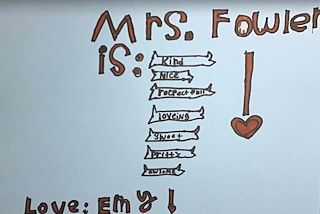 Mrs. Fowler
is:
Kind
Nice
respectfull
loveing
Sweet
Pritty
awsome
Love: Emy